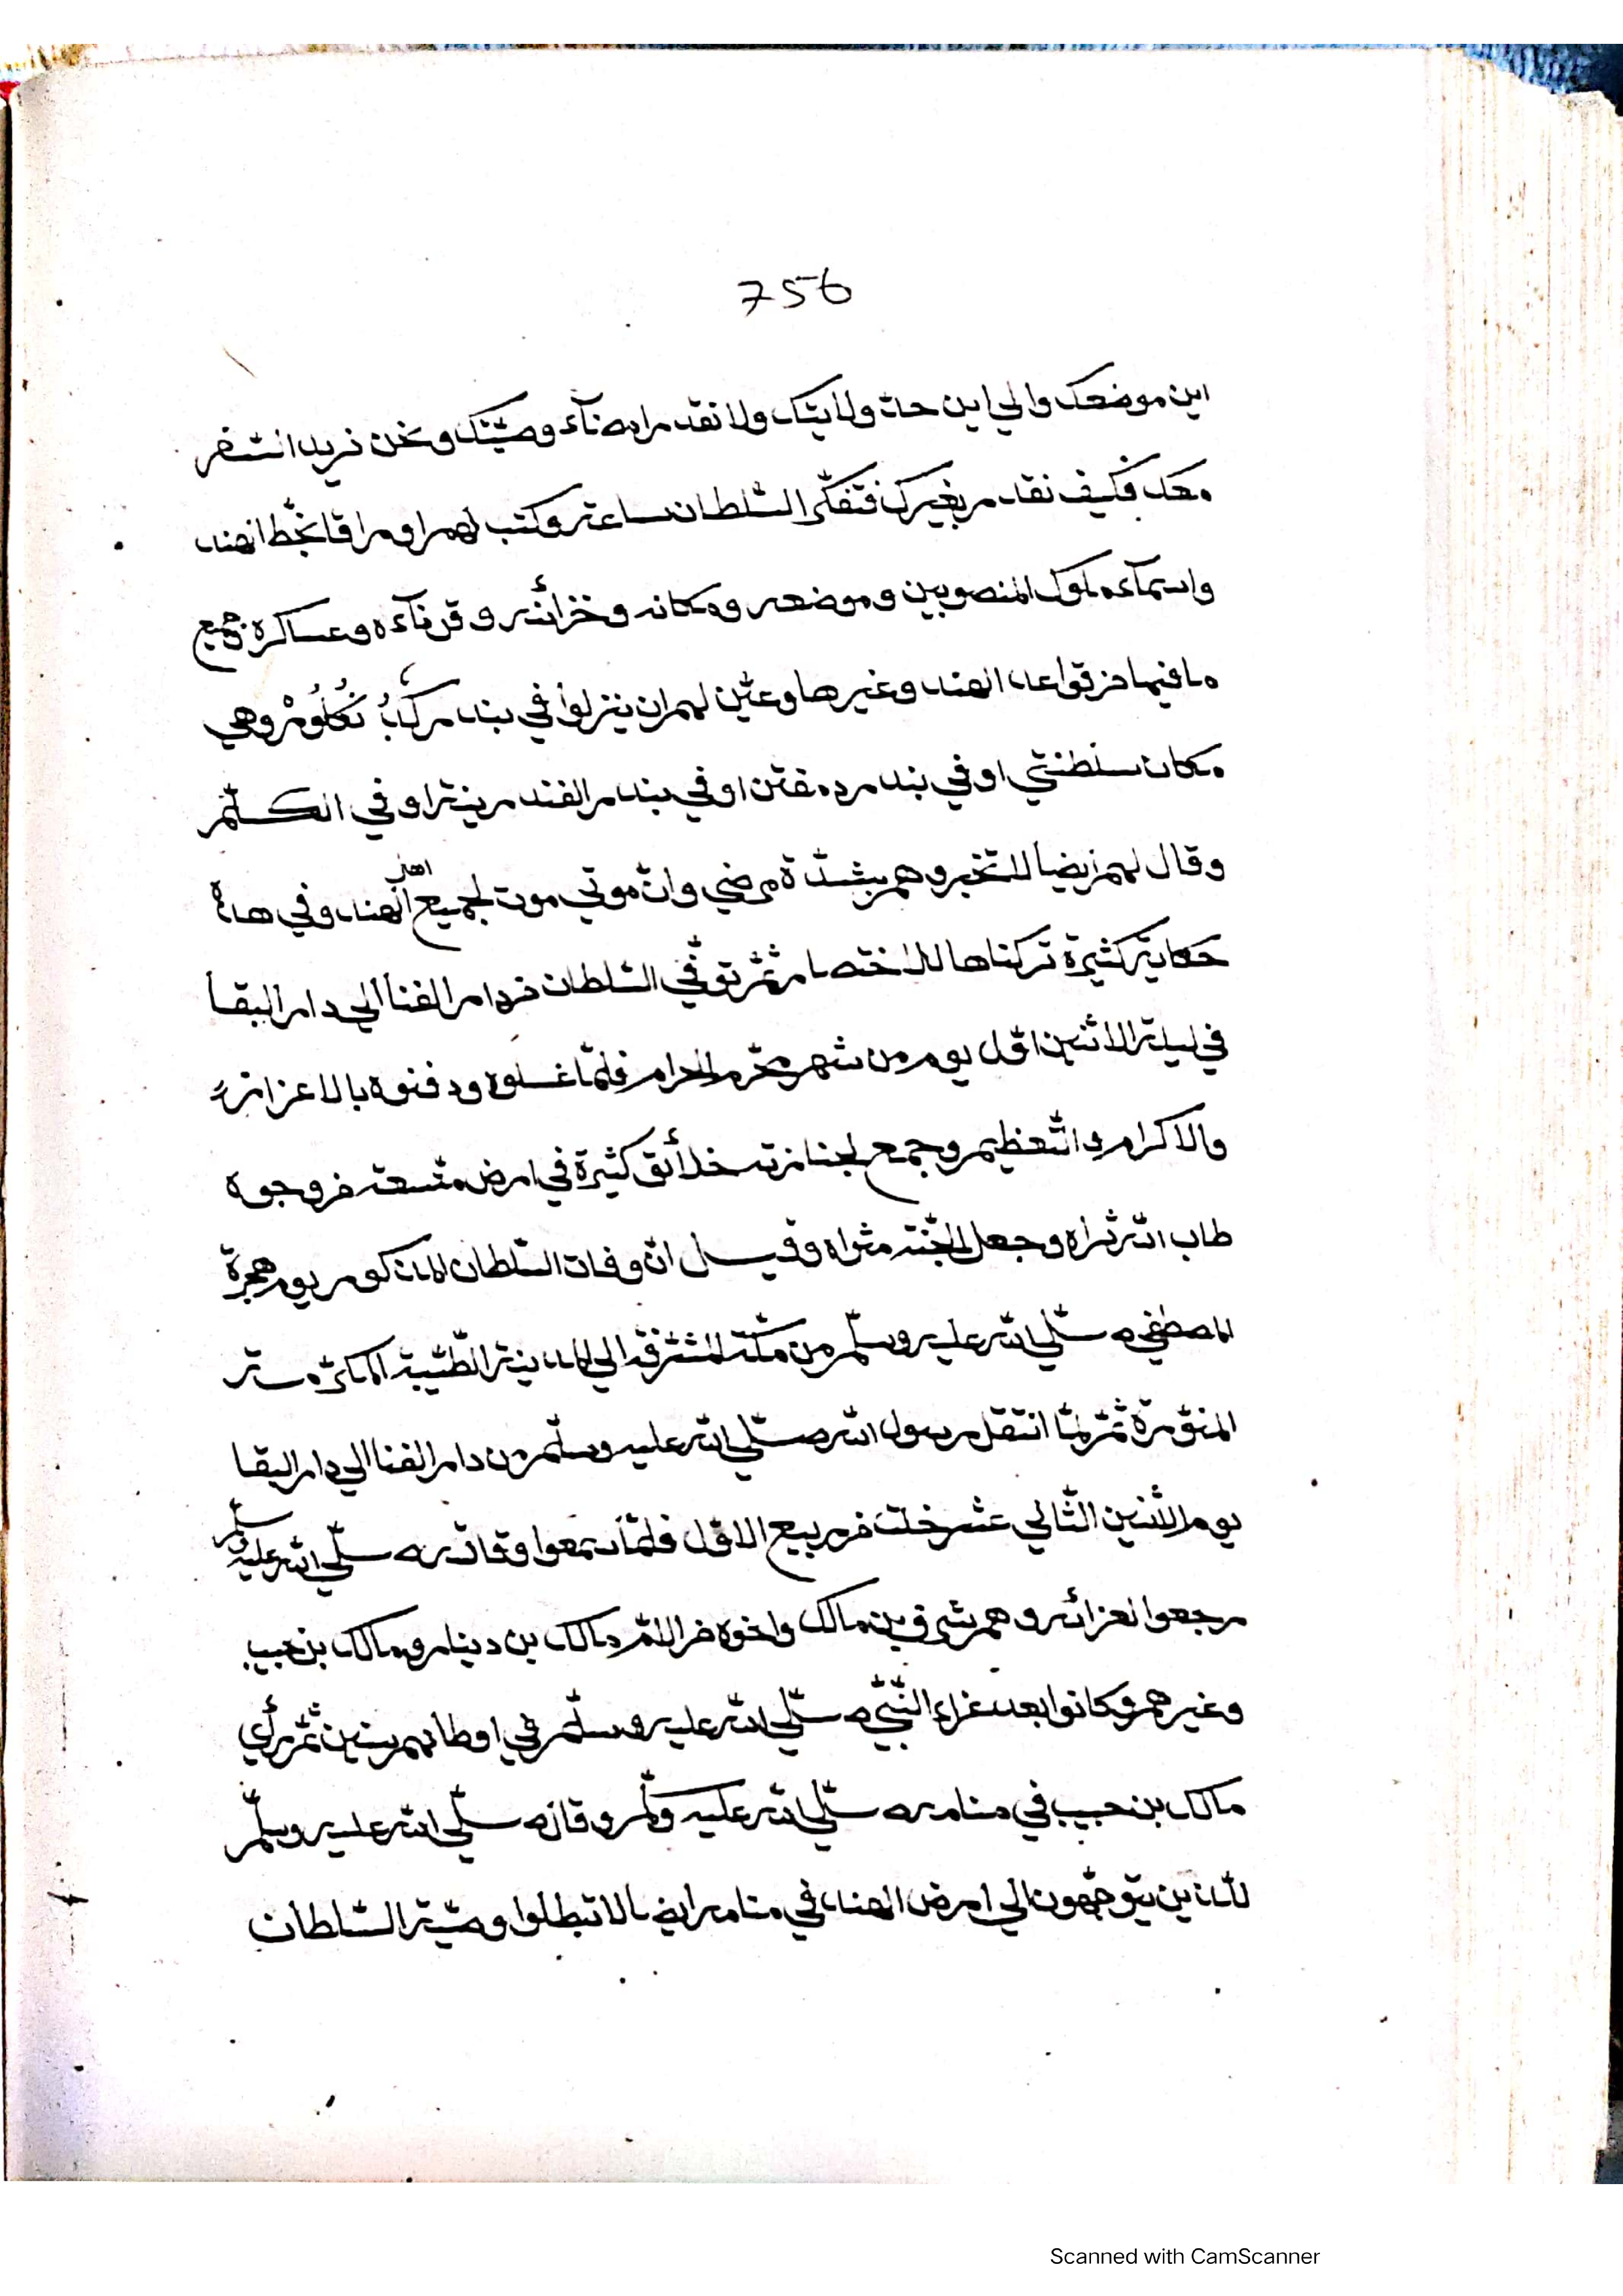 756
اين موضعك والي اين حدّ ولايتك ولا نقدر امضآء وصيّتك ونحن نريد السّفر
معك فكيف نقدر بغيرك فتفكّر السّلطان ساعة وكتب لهم اوراقا بخطّ الهند
واسمآء ملوك المنصوبين وموضعه ومكانه وخزائنه وقرنآءه وعساكره وجميع
ما فيها من قواعد الهند وغيرها وعيّن لهم ان ينزلوا في بندر كُدُنْكَلُورْ وهي
مكان سلطنتي او في بندر درمفتن او في بندر الفندرينة او في الكلّم
وقال لهم ايضا لا تخبروهم بشدّة مرضي وانّ موتي موت لجميع اهل الهند وفي هذه
حكاية كثيرة تركناها للاختصار ثمّ توفّي السّلطان من دار الفنا الي دار البقا
في ليلة الاثنين اوّل يوم من شهر محرّم الحرام فلمّا غسلوه ودفنوه بالاعزاز
والاكرام والتّعظيم وجمع لجنازته خلائق كثيرة في ارض متّسعة فروجوه
طاب الله ثراه وجعل الجنّة مثواه وقيل انّ وفات السّلطان المذكور يوم هجرة
المصطفي صلّي الله عليه وسلّم من مكّة المشرّفة الي المدينة الطّيّبة
المنوّرة ثمّ لمّا انتقل رسول الله صلّي الله عليه وسلّم من دار الفنا الي دار البقا
يوم الاثنين الثّاني عشر خلت من ربيع الاوّل فلمّا سمعوا وفاته صلّي الله عليه وسلّم
رجعوا لعزائه وهم شرف بن مالك واخوه من الامّ مالك بن دينار ومالك بن حبيب
وغيرهم وكانوا بعد عزاء النّبيّ صلّي الله عليه وسلّم في اوطانهم سنين ثمّ رأي
مالك بن حبيب في منامه صلّي الله عليه وسلّم وقال صلّي الله عليه وسلّم
للّذين يتوجّهون الي ارض الهند في منامه ايضا لا تبطلوا وصيّة السّلطان
Scanned with CamScanner